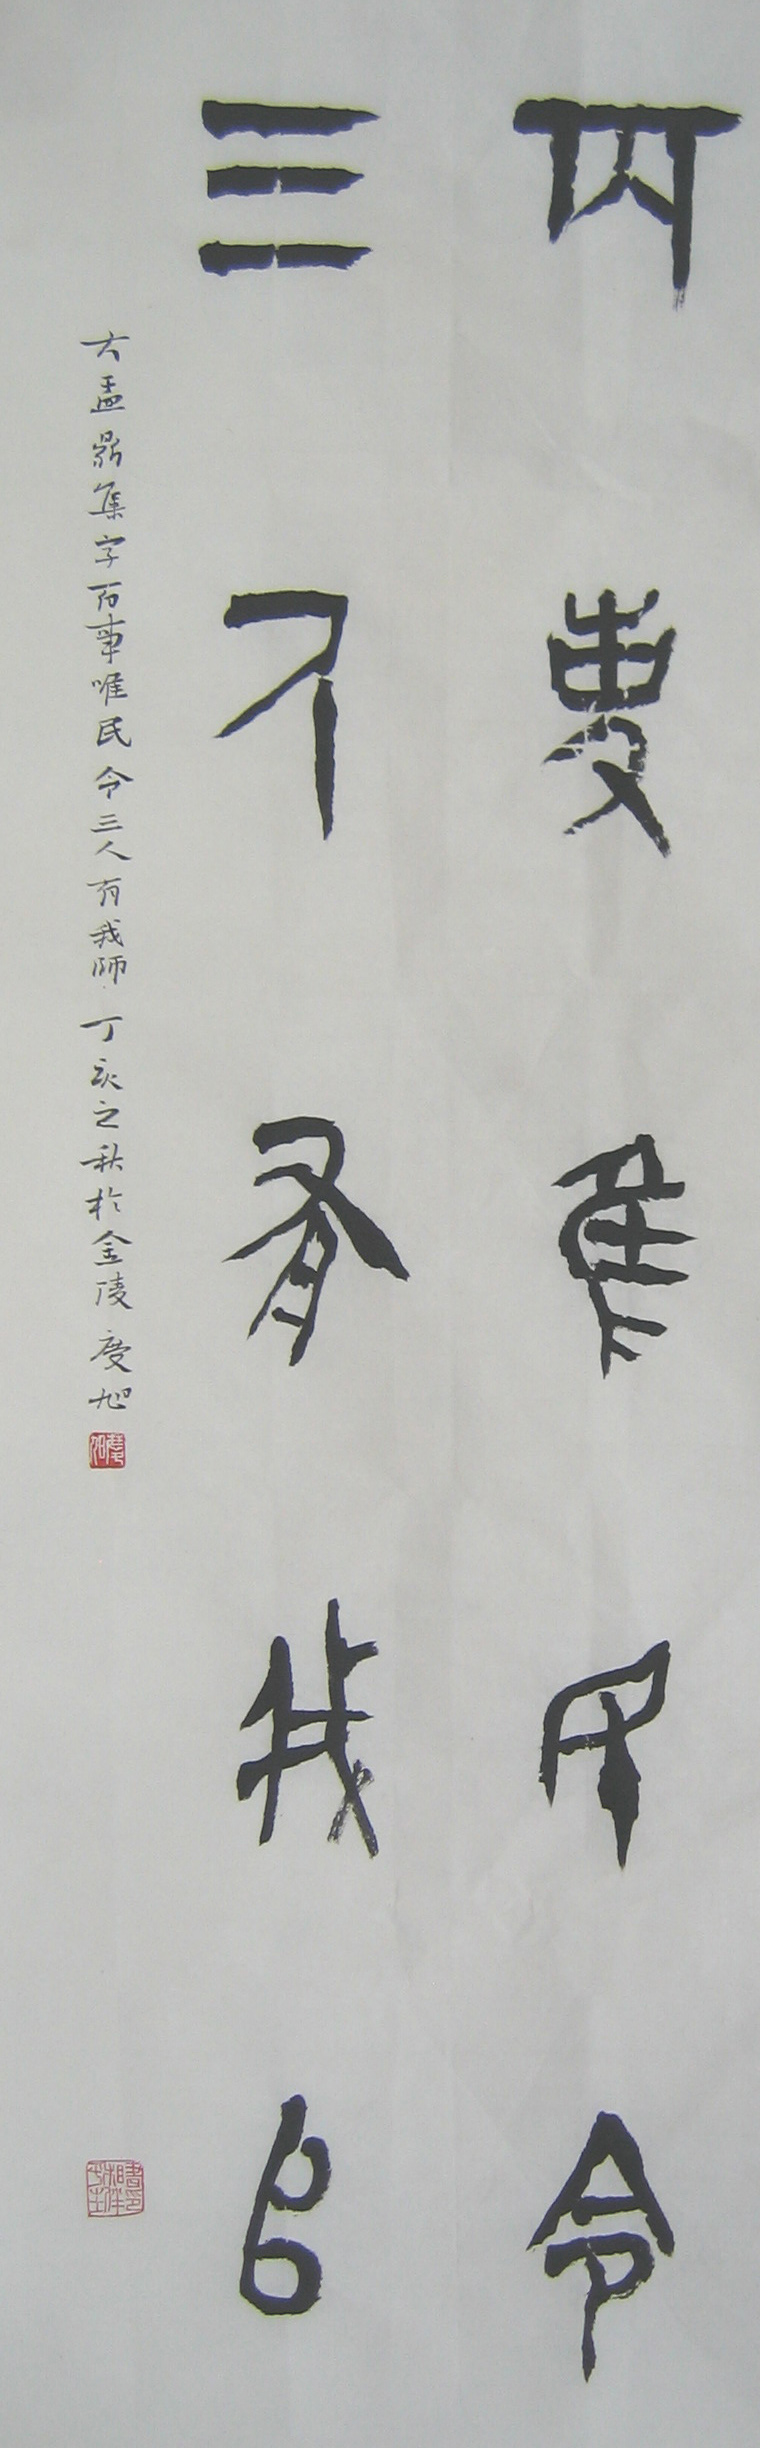 百事唯民令
三人有我師
大盂鼎集字百事唯民令三人有我師 丁亥之秋於金陵慶旭